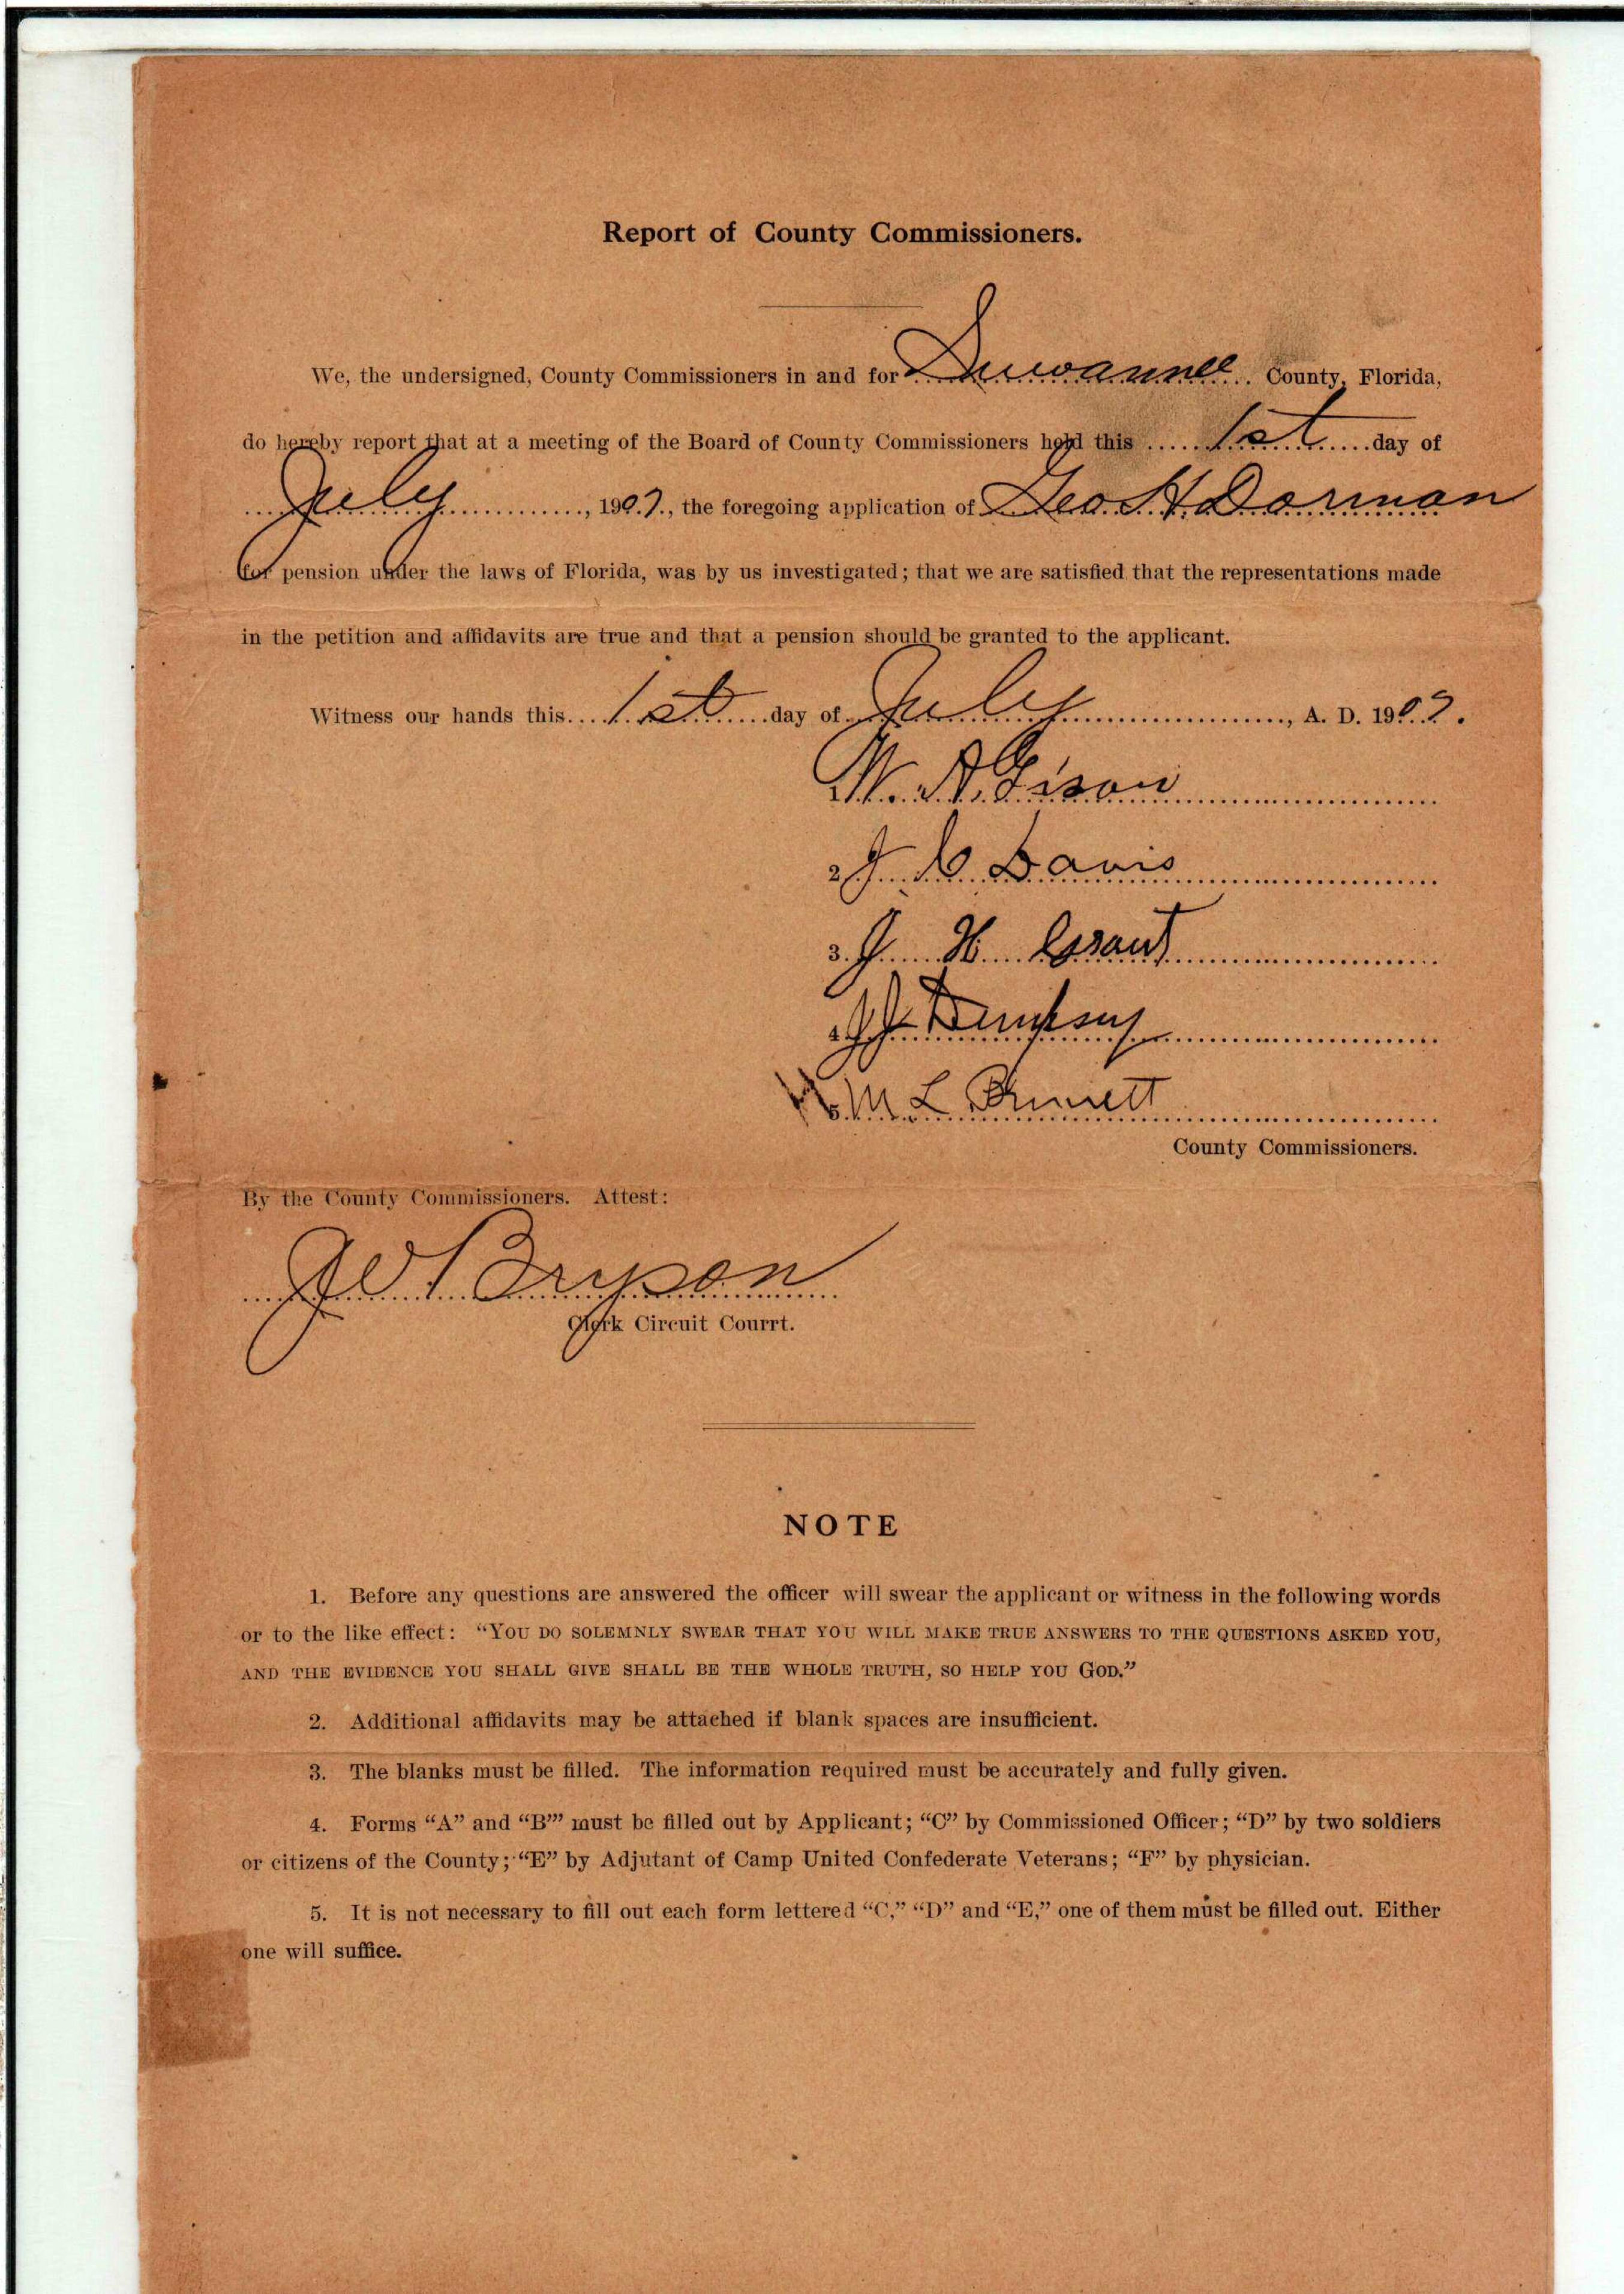 Report of County Commissioners.
We, the undersigned, County Commissioners in and for Suwannee County, Florida,
do hereby report that at a meeting of the Board of County Commissioners held this 1st day of
July, 1907, the foregoing application of Geo H Dorman
for pension under the laws of Florida, was by us investigated; that we are satisfied that the representations made
in the petition and affidavits are true and that a pension should be granted to the applicant.
Witness our hands this 1st day of July, A. D. 1907.
1 W. A.
2 J C Davis
3. J H Grant
4 J J Dempsey
5. Wm L
County Commissioners.
By the County Commissioners. Attest:
J W Bryson
Clerk Circuit Courrt.
NOTE
1. Before any questions are answered the officer will swear the applicant or witness in the following words
or to the like effect: “YOU DO SOLEMNLY SWEAR THAT YOU WILL MAKE TRUE ANSWERS TO THE QUESTIONS ASKED YOU,
AND THE EVIDENCE YOU SHALL GIVE SHALL BE THE WHOLE TRUTH, SO HELP YOU GOD.”
2. Additional affidavits may be attached if blank spaces are insufficient.
3. The blanks must be filled. The information required must be accurately and fully given.
4. Forms “A” and “B”’ must be filled out by Applicant; “C” by Commissioned Officer; “D” by two soldiers
or citizens of the County; “E” by Adjutant of Camp United Confederate Veterans; “F” by physician.
5. It is not necessary to fill out each form lettered “C,” “D” and “E,” one of them must be filled out. Either
one will suffice.